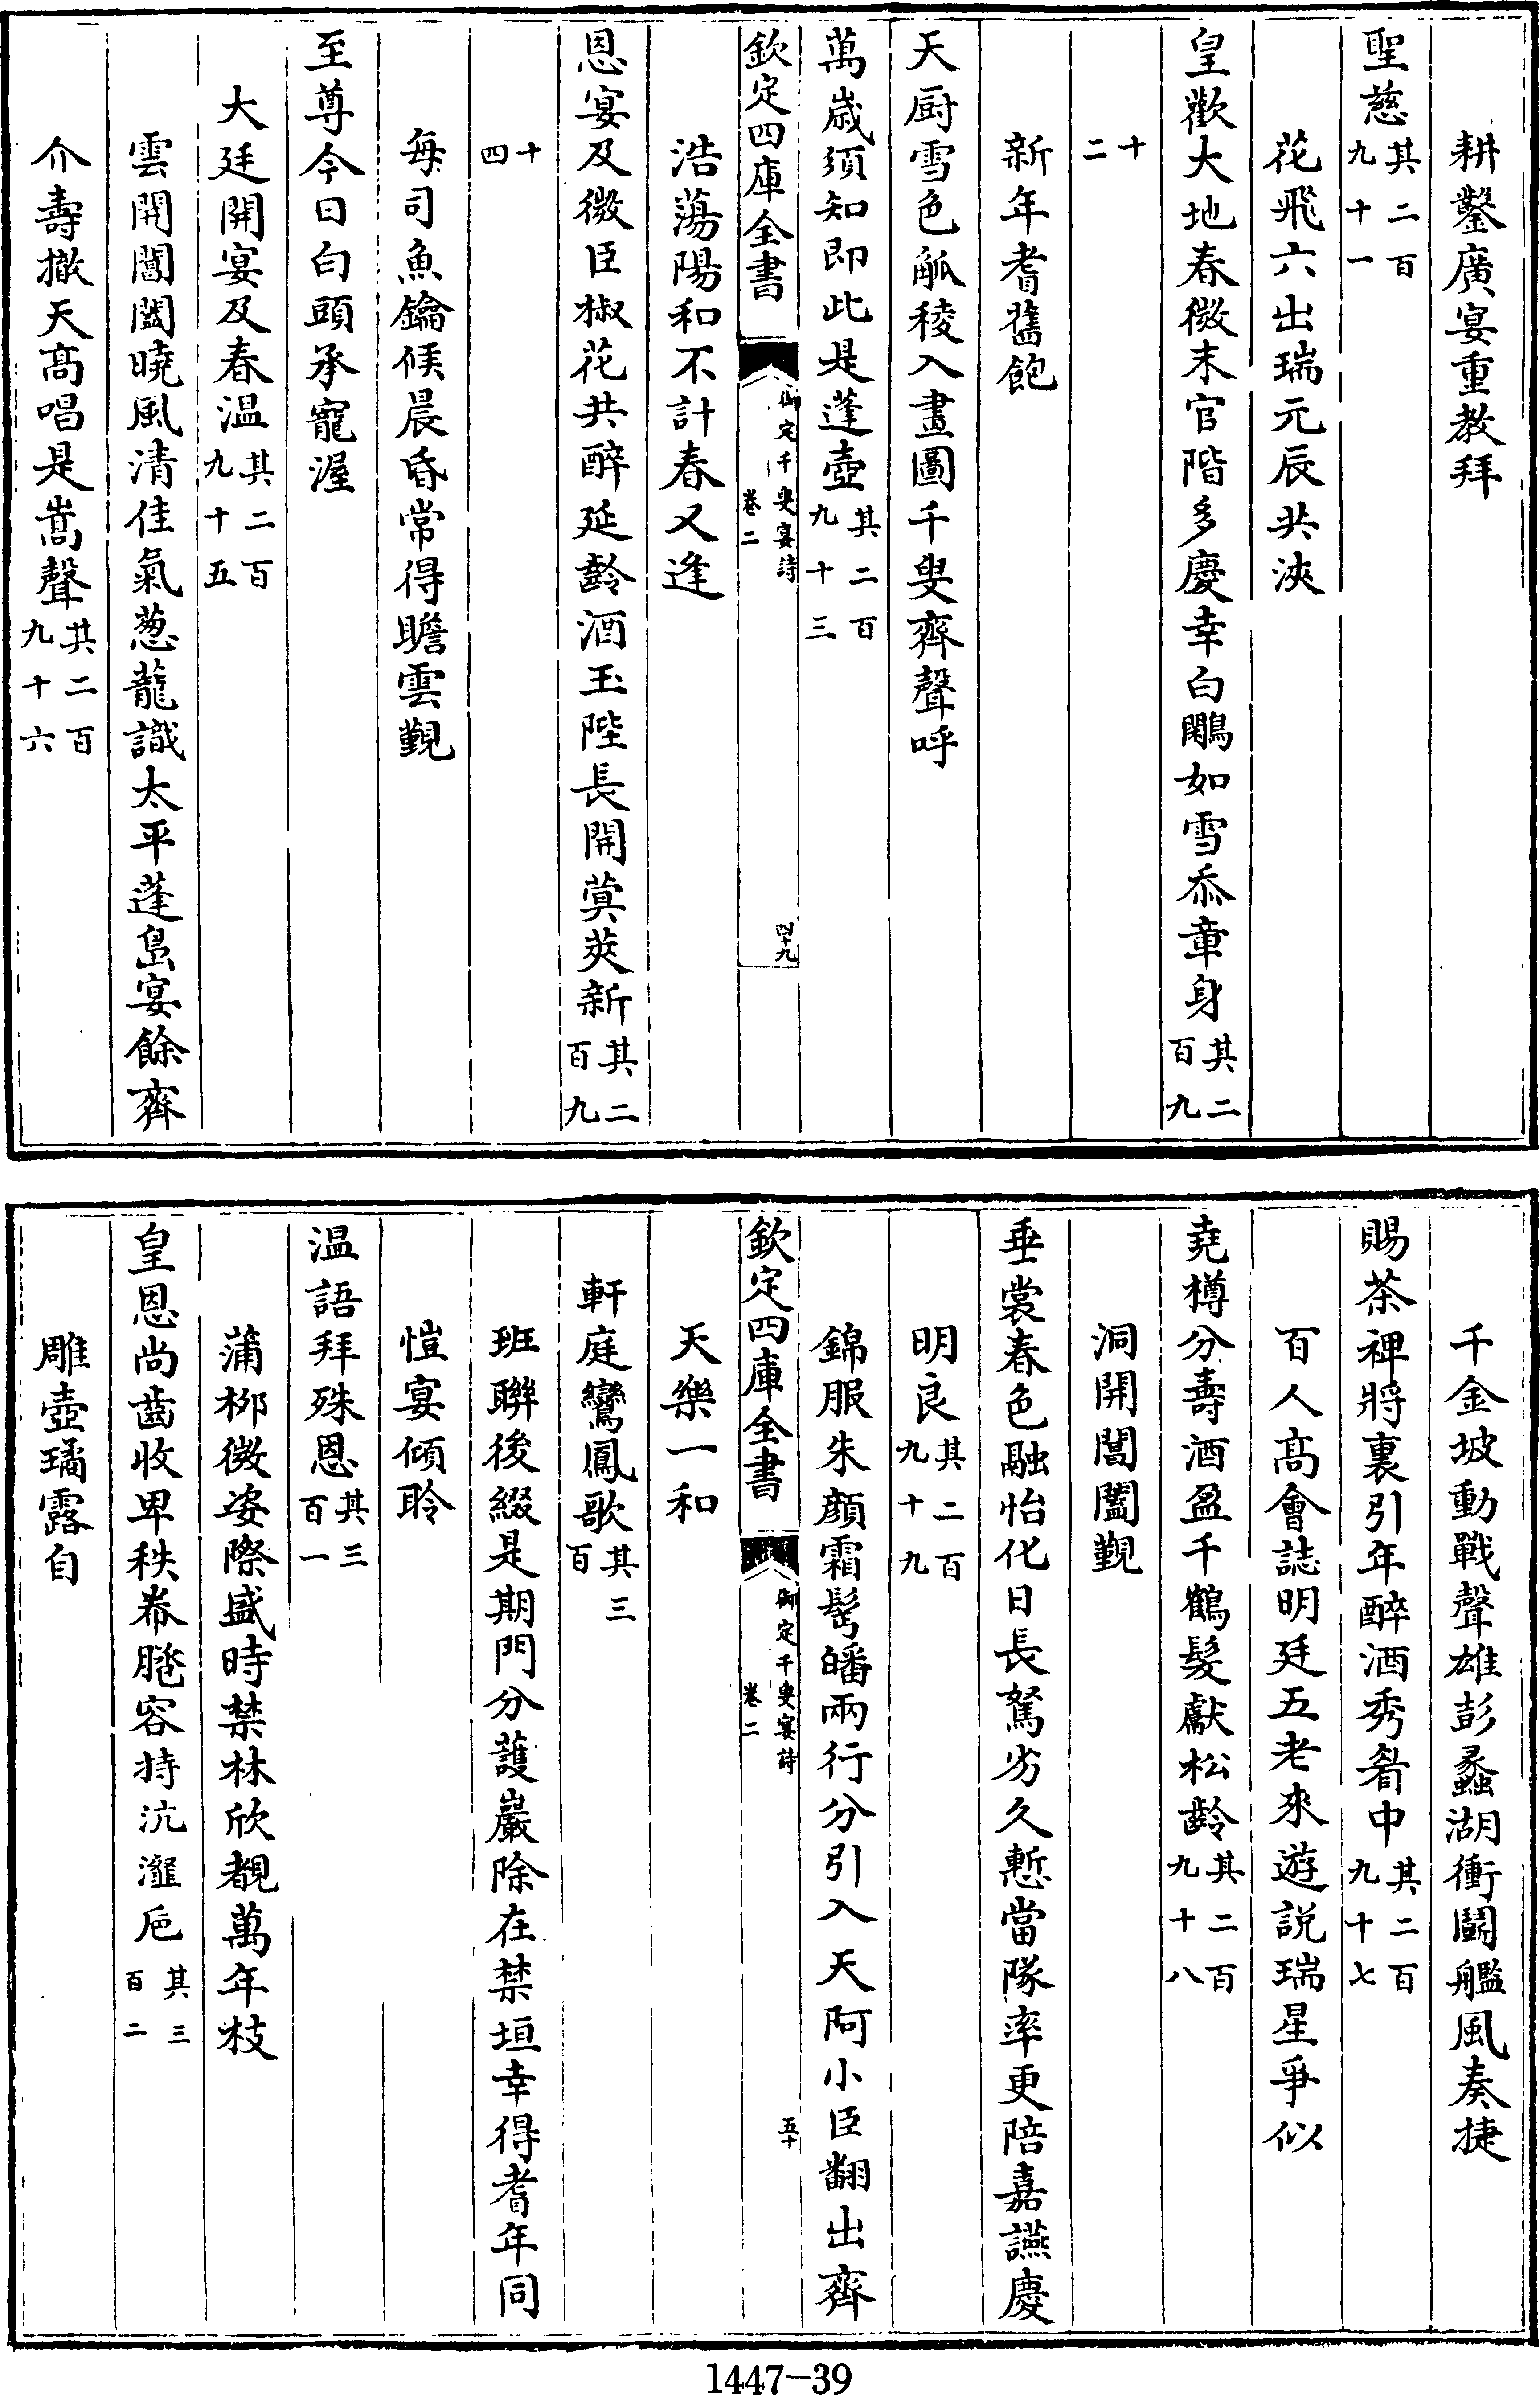 耕鑿廣宴重教拜
聖慈其二百九十一
花飛六出瑞元辰共浹
皇歡大地春微末官階多慶幸白鷴如雪忝章身其二百九
十二
新年耆舊飽
天厨雪色觚稜入畫圖千叟齊聲呼
萬歲須知即此是蓬壺其二百九十三
欽定四庫全書
御定千叟宴詩
卷二
四十九
浩蕩陽和不計春又逢
恩宴及微臣椒花共醉延齡酒玉陛長開蓂莢新其二百九
十四
每司魚鑰候晨昏常得瞻雲覲
至尊今日白頭承寵渥
大廷開宴及春温其二百九十五
雲開閶闔曉風清佳氣葱蘢識太平蓬島宴餘齊
介壽撤天高唱是嵩聲其二百九十六
千金坡動戰聲雄彭蠡湖衝鬬艦風奏捷
賜茶禆將裏引年醉酒秀眉中其二百九十七
百人高會誌明廷五老來遊説瑞星爭似
堯樽分壽酒盈千鶴髮獻松齡其二百九十八
洞開閶闔覲
垂裳春色融怡化日長駑劣久慙當隊率更陪嘉讌慶
明良其二百九十九
錦服朱顔霜髩皤兩行分引入天阿小臣翻出齊
欽定四庫全書
御定千叟宴詩
卷二
五十
天樂一和
軒庭鸞鳳歌其三百
班聯後綴是期門分護巖除在禁垣幸得耆年同
愷宴傾聆
温語拜殊恩其三百一
蒲柳微姿際盛時禁林欣覩萬年枝
皇恩尚齒收卑秩帣𦜕容持沆瀣卮其三百二
雕壺璚露自
1447-39